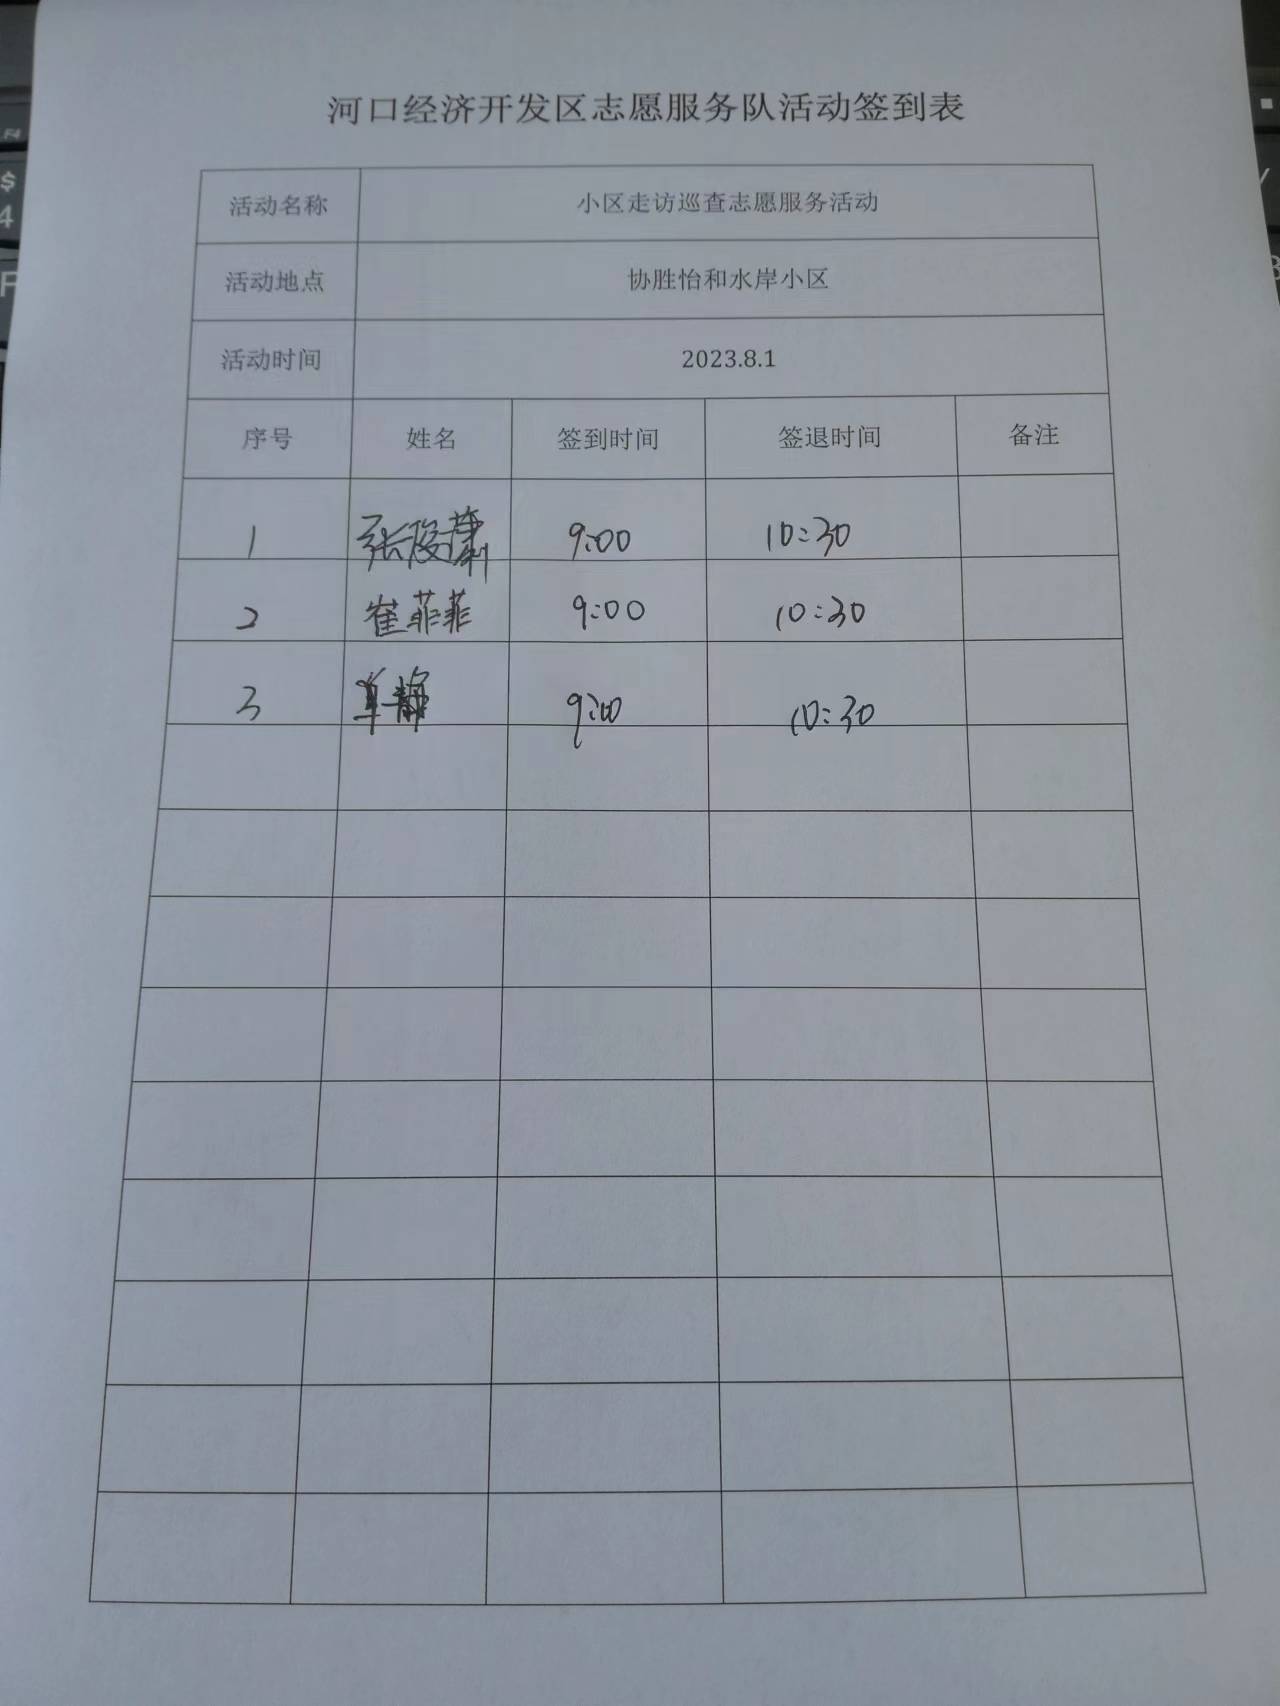 河口经济开发区志愿服务队活动签到表
活动名称 小区走访巡查志愿服务活动
活动地点 协胜怡和水岸小区
活动时间 2023.8.1
序号 姓名 签到时间 签退时间 备注
1 张俊 9:00 10:30
2 崔菲菲 9:00 10:30
3 单静 9:00 10:30
F4
$
4